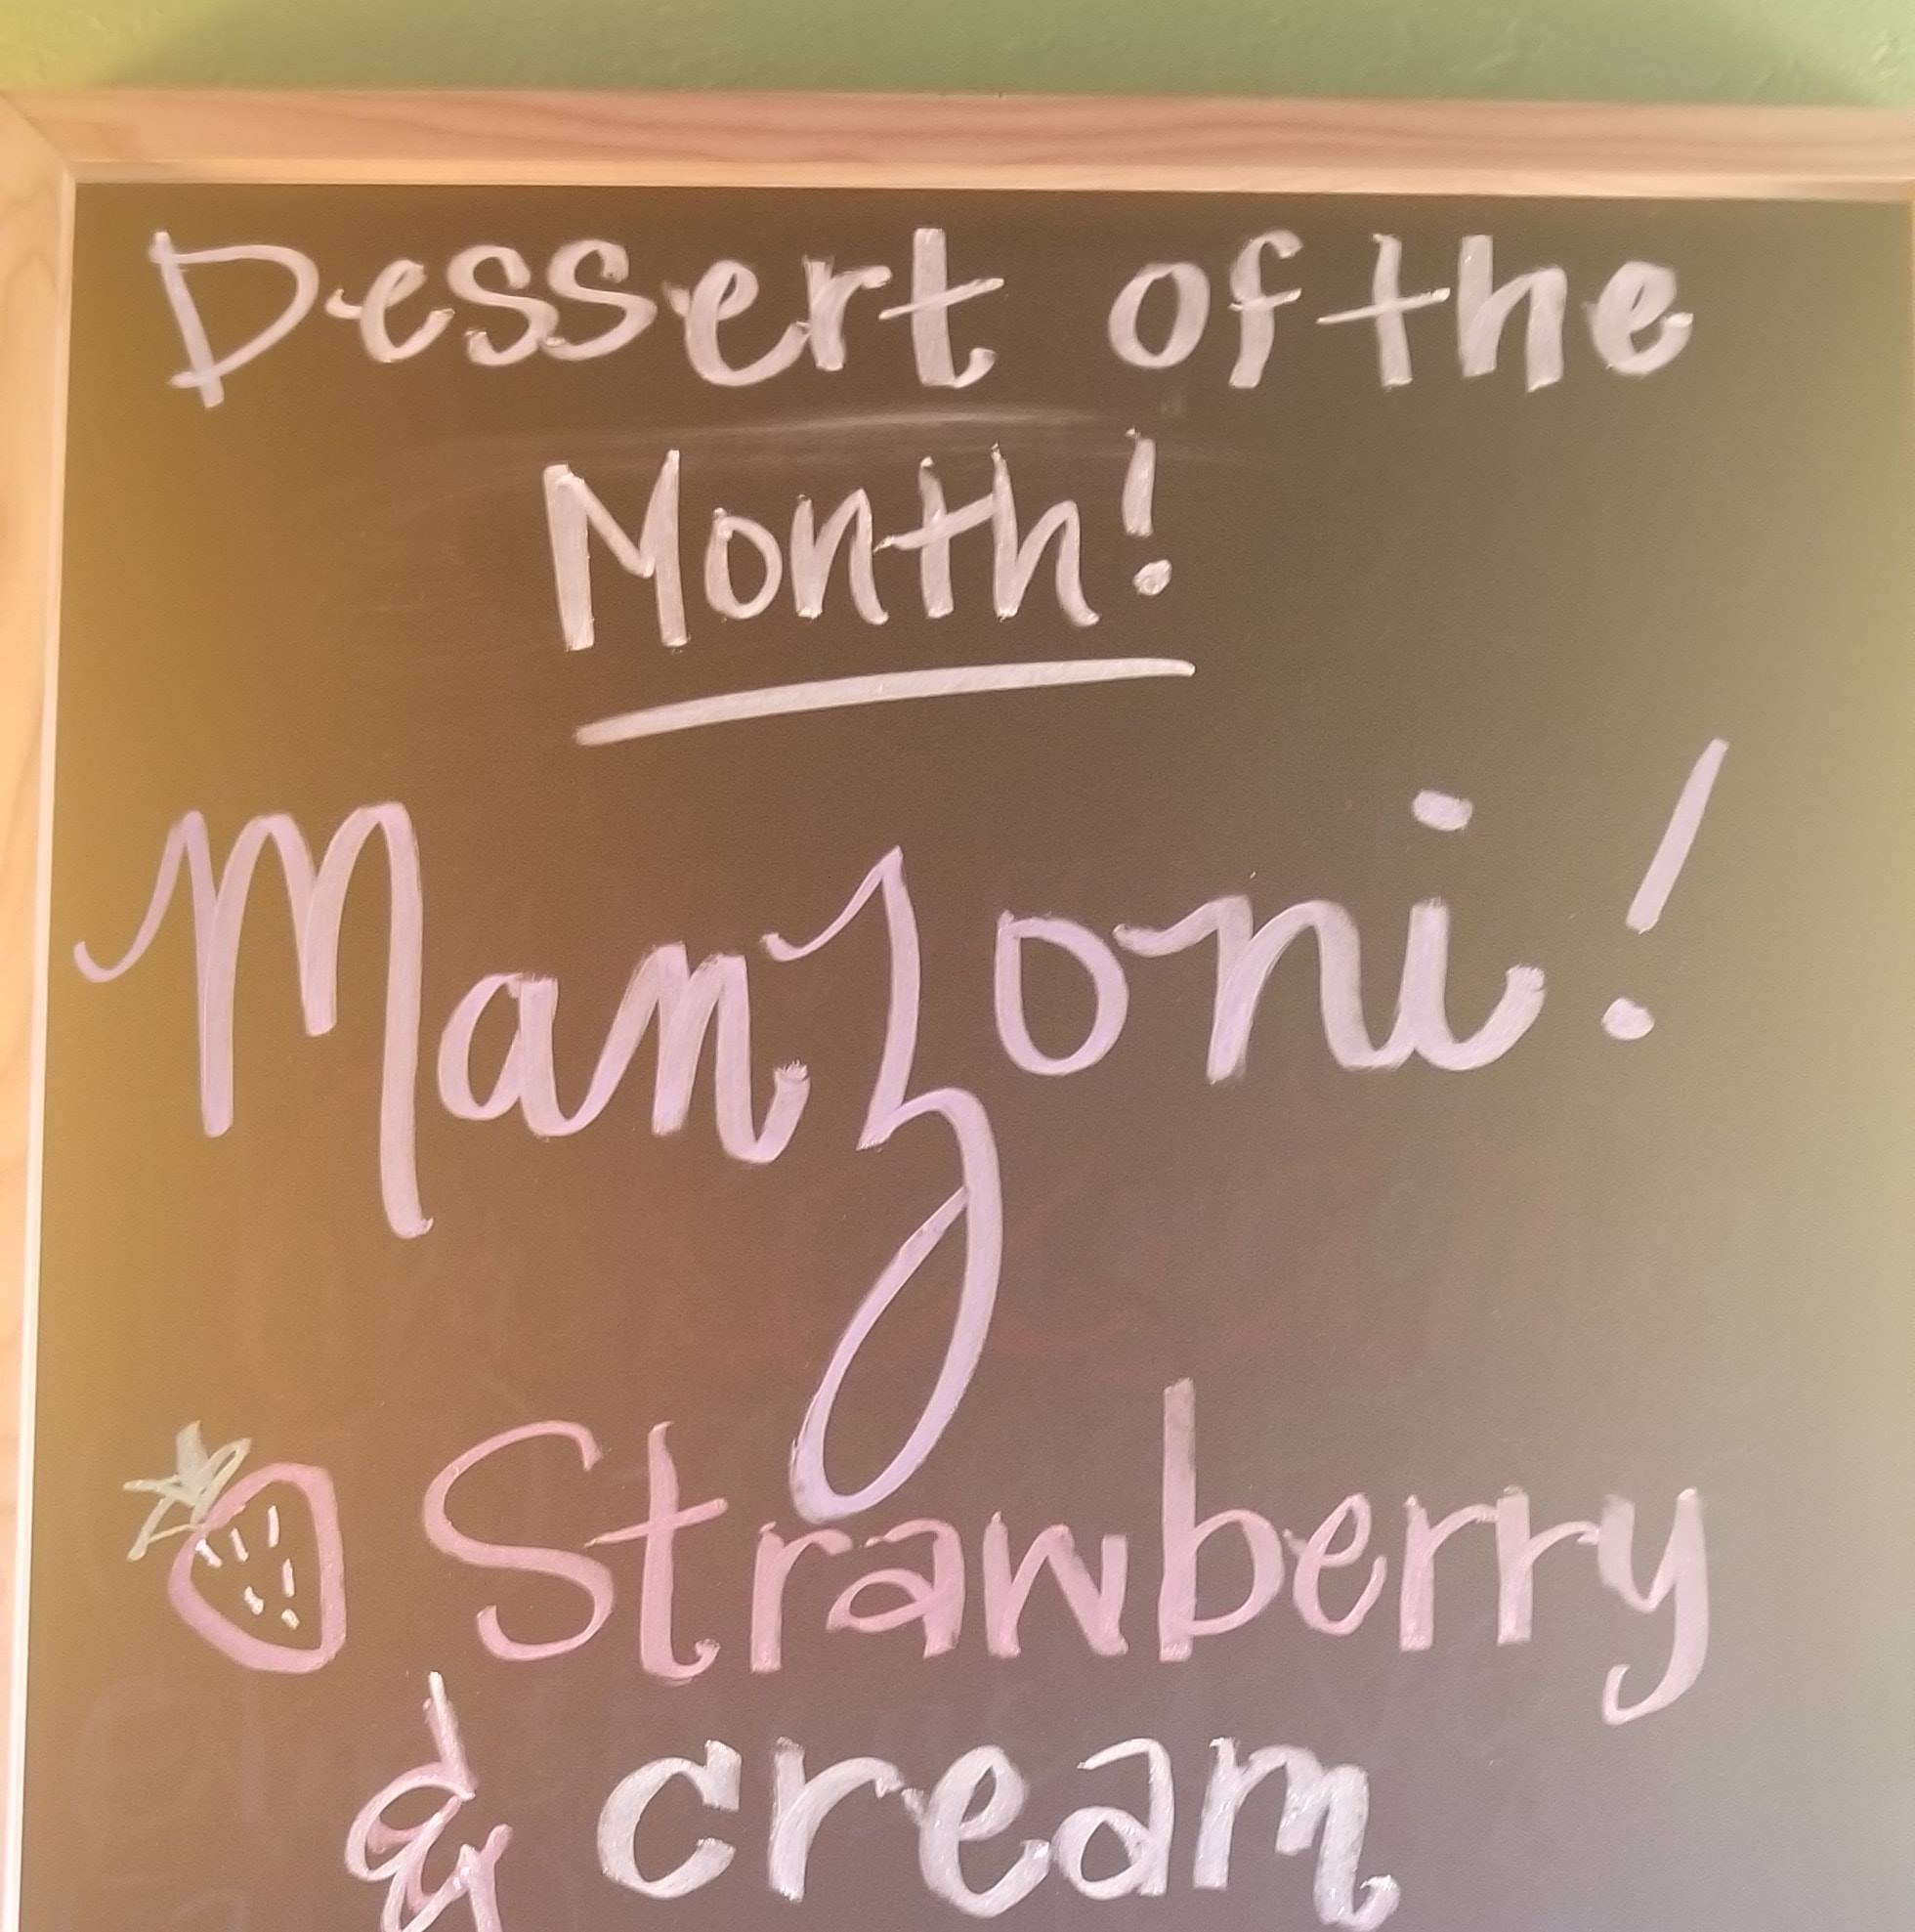 Dessert of the
Month!
Manzoni!
Strawberry
& cream